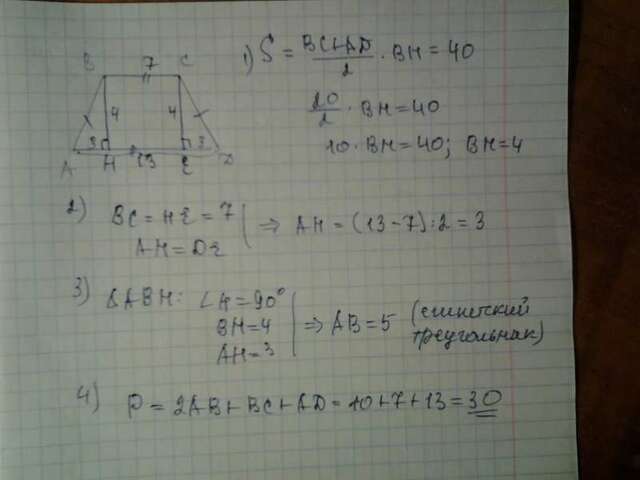 B 7 C
4 4
3 3
A H 13 E D
1) S = BC+AD/2 · BH = 40
20/2 · BH = 40
10 · BH = 40; BH = 4
2) BC = HE = 7
AH = DE
⇒ AH = (13-7):2 = 3
3) ΔABH: ∠H = 90°
BH = 4
AH = 3
⇒ AB = 5 (египетский
треугольник)
4) P = 2AB + BC + AD = 10 + 7 + 13 = 30